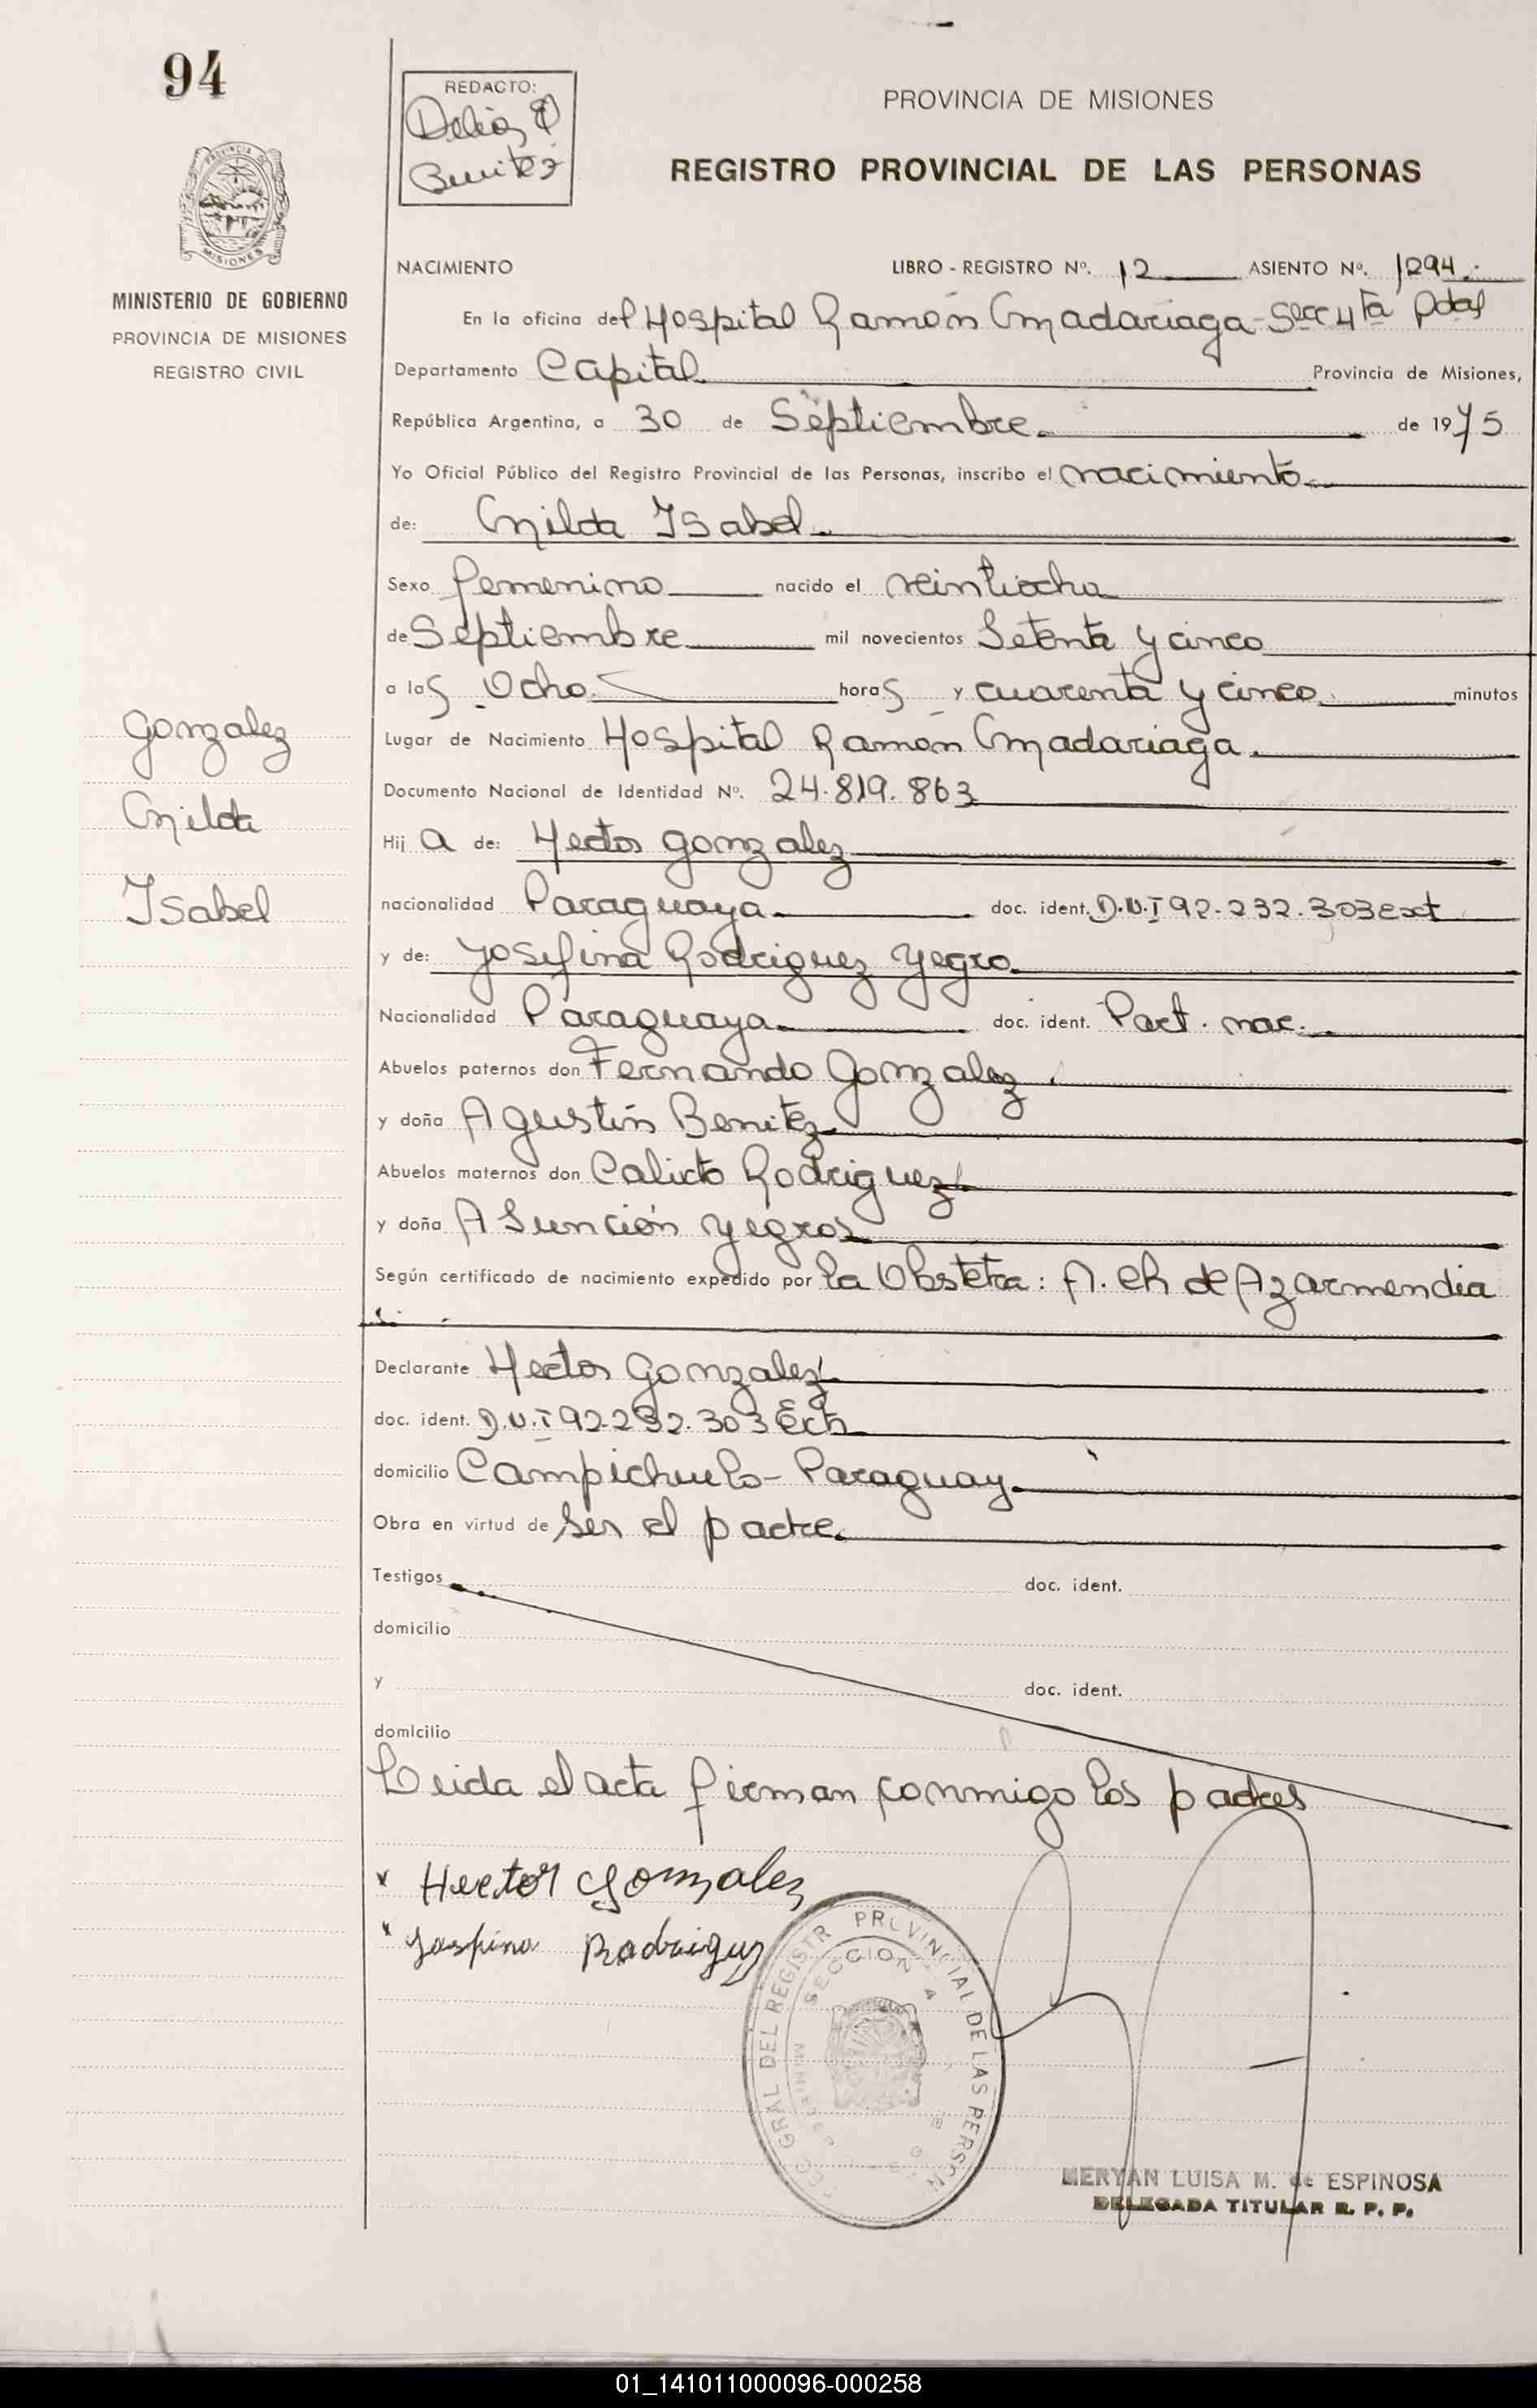 94
REDACTO:
Delia
Benitez
PROVINCIA DE MISIONES
REGISTRO PROVINCIAL DE LAS PERSONAS
MINISTERIO DE GOBIERNO
PROVINCIA DE MISIONES
REGISTRO CIVIL
NACIMIENTO LIBRO - REGISTRO Nº. 12 ASIENTO Nº. 1294.
En la oficina del Hospital Ramón Madariaga - Secc 4ta Pdas
Departamento Capital. Provincia de Misiones,
República Argentina, a 30 de Septiembre. de 1975
Yo Oficial Público del Registro Provincial de las Personas, inscribo el nacimiento.
de: Milda Isabel.
Sexo femenino nacido el veintiocho
de Septiembre mil novecientos Setenta y cinco
a las Ocho. horas y cuarenta y cinco. minutos
Gonzalez
Milda
Isabel
Lugar de Nacimiento Hospital Ramón Madariaga.
Documento Nacional de Identidad Nº. 24.819.863
Hija de: Hector Gonzalez
nacionalidad Paraguaya. doc. ident. D.N.I 92.232.303 ext
y de: Josefina Rodriguez Yegro.
Nacionalidad Paraguaya. doc. ident. Part. nac.
Abuelos paternos don Fernando Gonzalez.
y doña Agustín Benitez.
Abuelos maternos don Calixto Rodriguez.
y doña Asunción Yegros
Según certificado de nacimiento expedido por la Obstetra: A. Ch de Azarmendia
Declarante Hector Gonzalez.
doc. ident. D.N.I 92.232.303
domicilio Campichuelo - Paraguay.
Obra en virtud de ser el padre.
Testigos doc. ident.
domicilio
y doc. ident.
domicilio
Leida el acta firman conmigo los padres
x Hector Gonzalez
x Josfina Rodriguz
GRAL DEL REGISTR PROVINCIAL DE LAS PERSON
SECCION 4
MERYAN LUISA M. de ESPINOSA
DELEGADA TITULAR R. P. P.
01_141011000096-000258